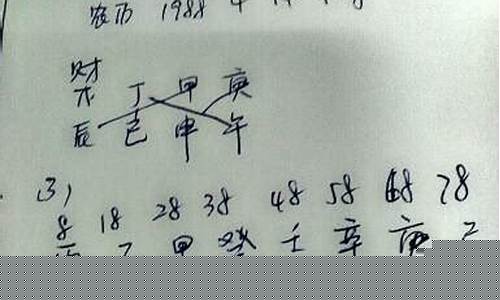 农历 1988 年
财
木 丁 甲 庚
辰 巳 申 午
(3)
8 18 28 38 48 58 68 78
甲 癸 壬 辛 庚